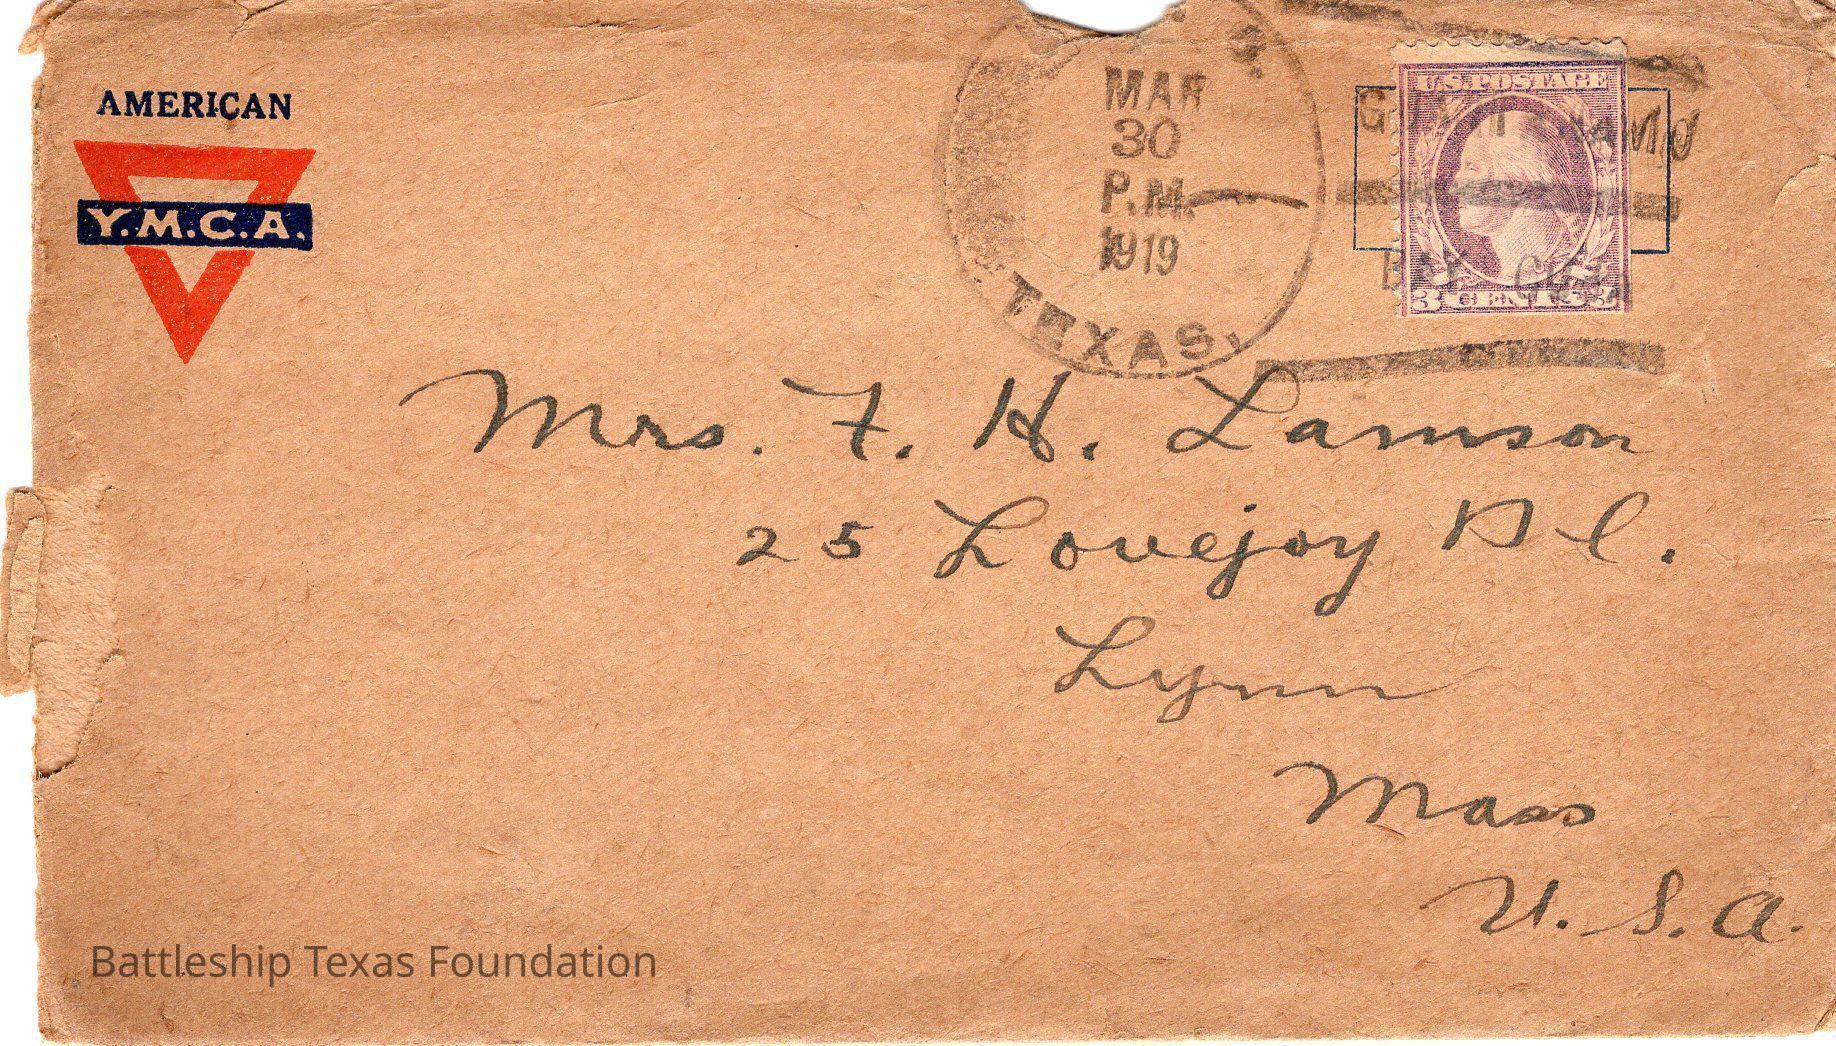 AMERICAN
Y.M.C.A.
S.
MAR
30
P.M.
1919
TEXAS.
U.S. POSTAGE
3 CENTS 3
Mrs. F. H. Lamson
25 Lovejoy Pl.
Lynn
Mass
U.S.A.
Battleship Texas Foundation